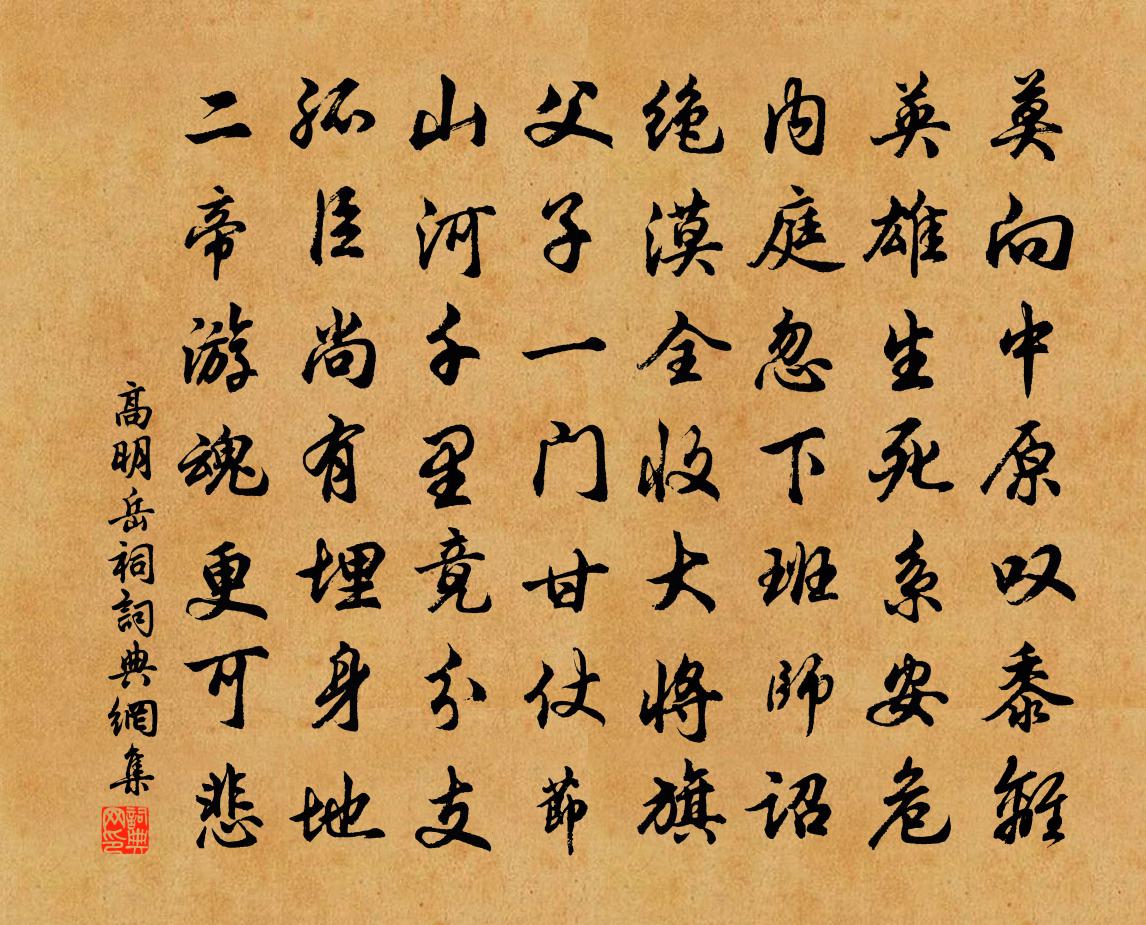 莫向中原叹黍離
英雄生死系安危
内庭忽下班師诏
绝漠全收大將旗
父子一门甘仗節
山河千里竟分支
孤臣尚有埋身地
二帝游魂更可悲
高明岳祠詞典網集
詞典网印